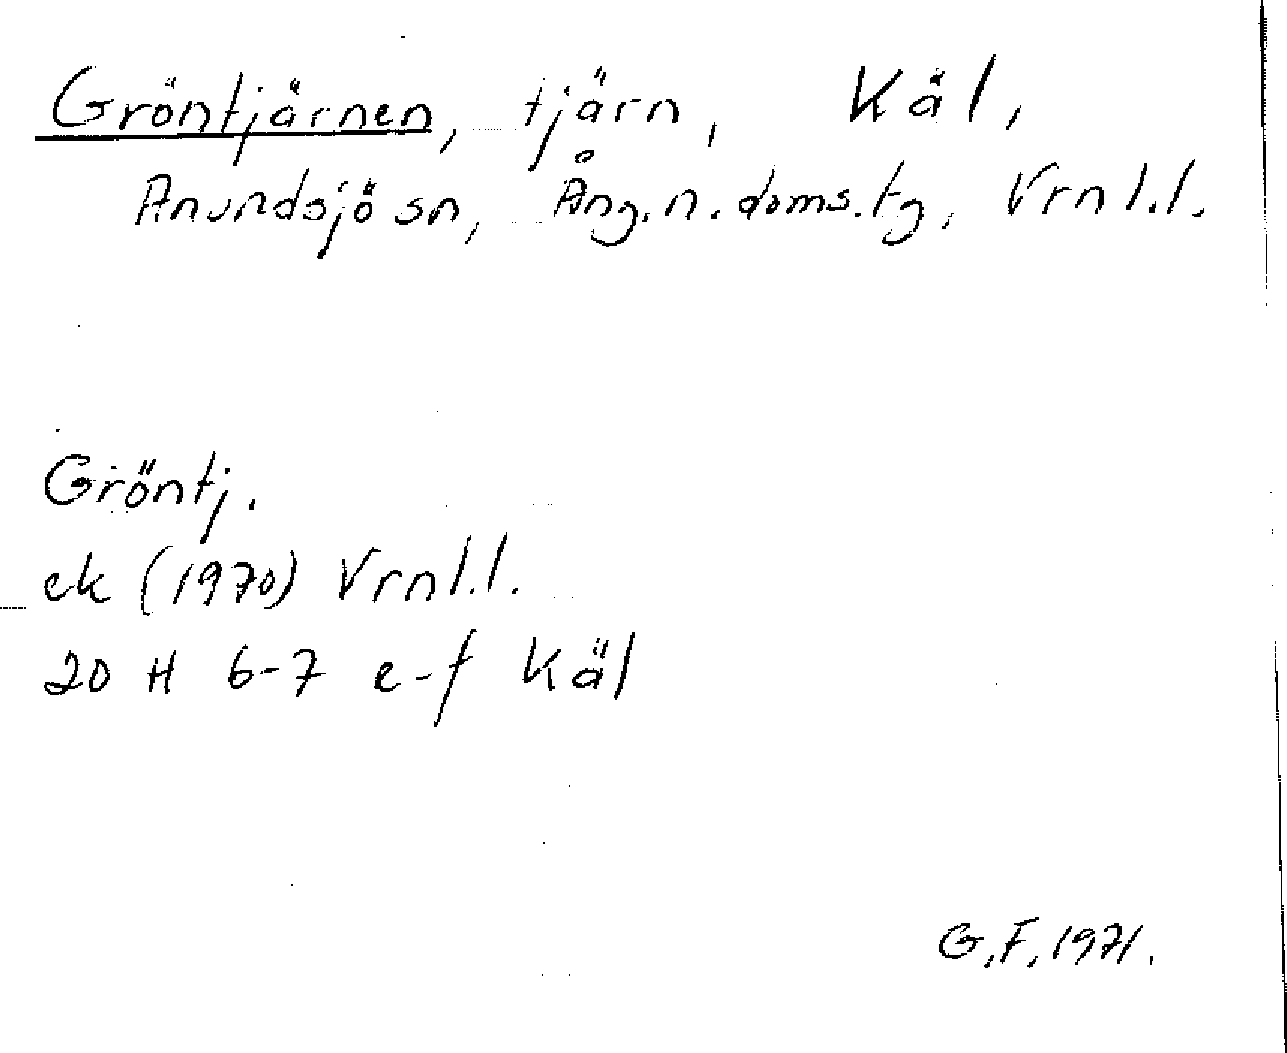 Gröntjärnen, tjärn, Käl,
Anundsjö sn, Ång.n.doms.tg, Vrnl.l.
Gröntj.
ek (1970) Vrnl.l.
20 H 6-7 e-f Käl
G.F. 1971.